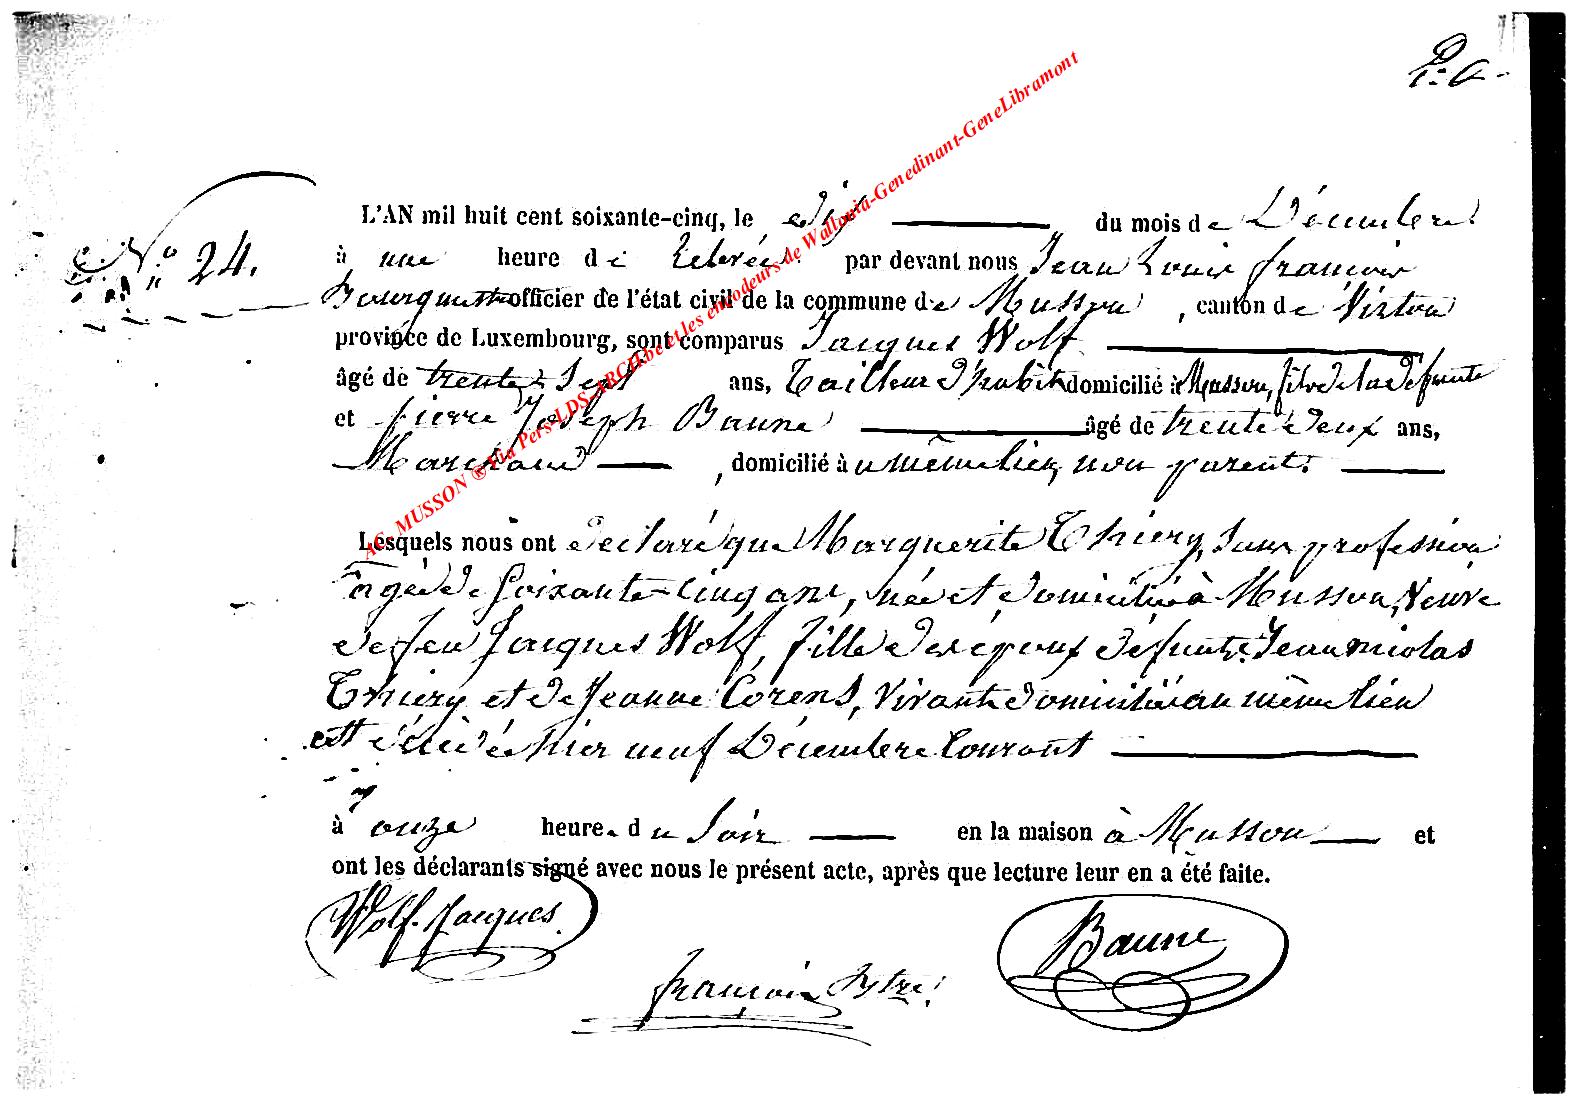 N° 24.
L'AN mil huit cent soixante-cinq, le dix du mois de Décembre
à une heure de relevée par devant nous Jean Louis François
officier de l'état civil de la commune de Musson, canton de Virton
province de Luxembourg, sont comparus Jacques Wolf
âgé de trente-sept ans, Tailleur d'habits domicilié à Musson, fils de la défunte
et Pierre Joseph Baune âgé de trente deux ans,
Marchand, domicilié au même lieu, non parent.
Lesquels nous ont déclaré que Marguerite Thiery, sans profession
âgée de soixante-cinq ans, née et domiciliée à Musson, Veuve
de feu Jacques Wolf, fille des époux défunts Jean Nicolas
Thiery et de Jeanne Corens, vivant domiciliés au même lieu
est décédée hier neuf Décembre Courant
à onze heure. du soir en la maison à Musson et
ont les déclarants signé avec nous le présent acte, après que lecture leur en a été faite.
Wolf. Jacques.
Baune
François
AC. MUSSON ® Via Pers-LDS-ARCH.be et les encodeurs de Wallonia-Genedinant-GeneLibramont